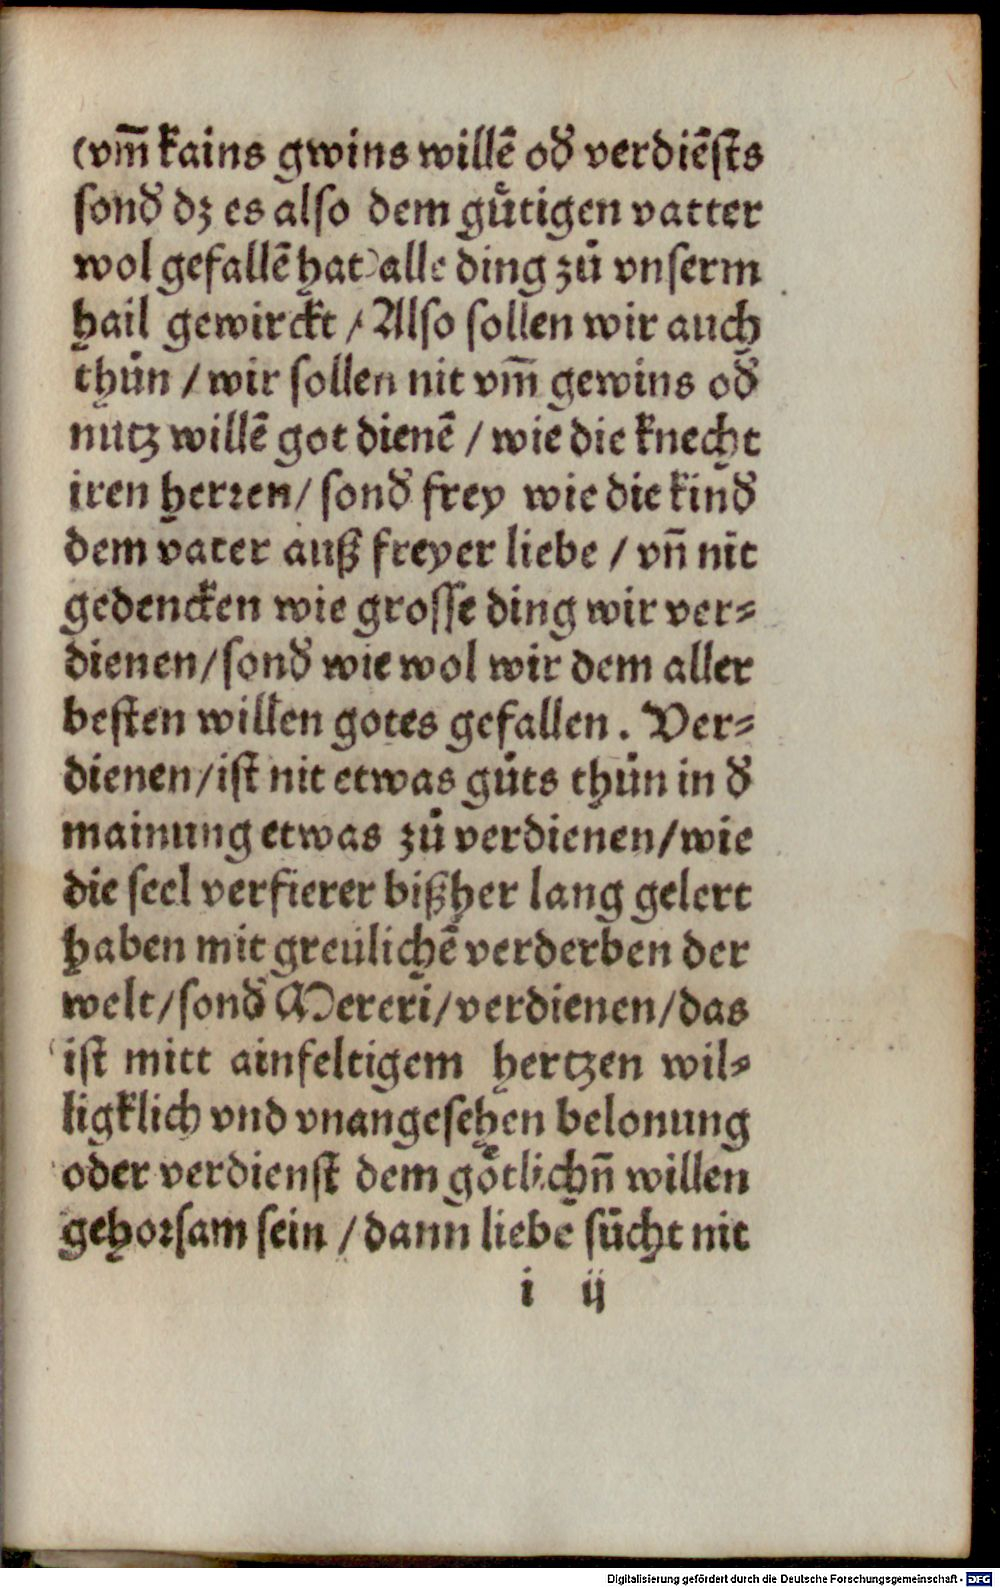 (vm̄ kains gwins willē od̕ verdiēsts
sond̕ dz es also dem gůtigen vatter
wol gefallē hat) alle ding zů vnserm
hail gewirckt / Also sollen wir auch
thůn / wir sollen nit vm̄ gewins od̕
nutz willē got dienē / wie die knecht
iren herren / sond̕ frey wie die kind̕
dem vater auß freyer liebe / vn̄ nit
gedencken wie grosse ding wir ver⸗
dienen / sond̕ wie wol wir dem aller
besten willen gotes gefallen. Ver⸗
dienen / ist nit etwas gůts thůn in d̕
mainung etwas zů verdienen / wie
die seel verfierer bißher lang gelert
haben mit greulichē verderben der
welt / sond̕ Mereri / verdienen / das
ist mitt ainfeltigem hertzen wil⸗
ligklich vnd vnangesehen belonung
oder verdienst dem gőtlichn̄ willen
gehorsam sein / dann liebe sůcht nit
i ij
Digitalisierung gefördert durch die Deutsche Forschungsgemeinschaft - DFG